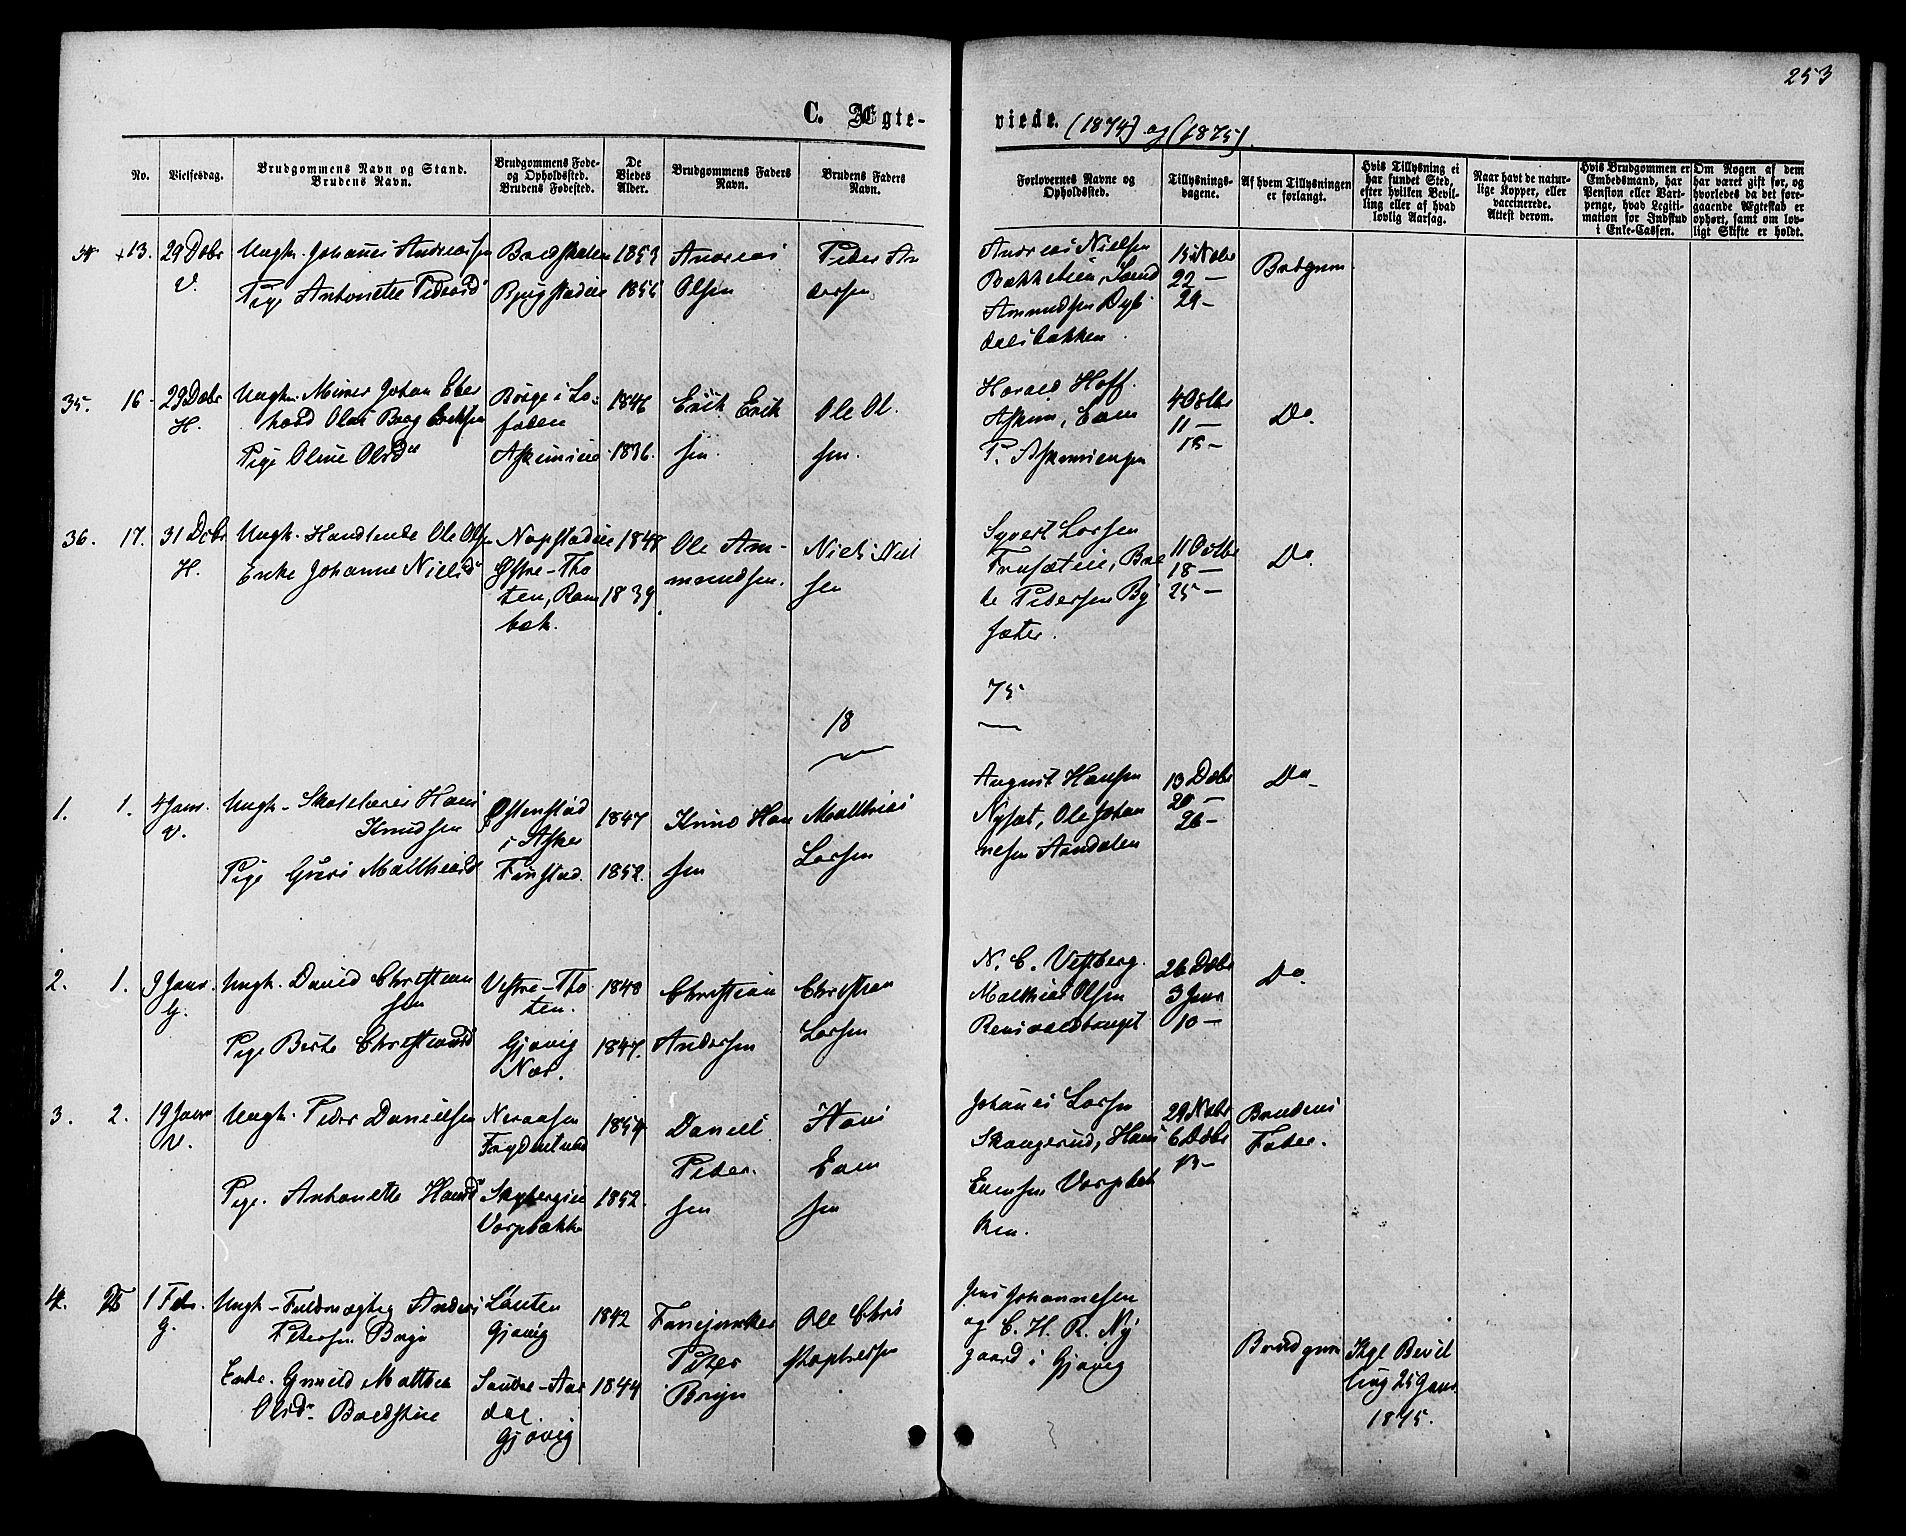 253
C. Ægte-
viede. (1874) og (1875).
No.
Vielsesdag.
Brudgommens Navn og Stand.
Brudens Navn.
Brudgommens Føde-
og Opholdssted.
Brudens Fødested.
De
Viedes
Alder.
Brudgommens Faders
Navn.
Brudens Faders
Navn.
Forlovernes Navne og
Opholdssted.
Tillysnings-
dagene.
Af hvem Tillysningen
er forlangt.
Hvis Tillysning ei
har fundet Sted,
efter hvilken Bevil-
ling eller af hvad
lovlig Aarsag.
Naar havt de natur-
lige Kopper, eller
vaccinerede.
Attest derom.
Hvis Brudgommen er
Embedsmand, har
Pension eller Vart-
penge, hvad Legiti-
mation for Indskud
i Enke-Cassen.
Om Nogen af dem
har været gift før, og
hvorledes da det fore-
gaaende Ægteskab er
ophørt, samt om lov-
ligt Skifte er holdt.
13.
29 Dcbr
V.
Ungk. Johannes Andreassen
Pige Antonette Pedersd
1853
1856
Andreas
Olsen
Peder An
dersen
Andreas Nielsen
Amundsen Dyb
dalsbakken.
15 Nobr
22 —
29 —
Brudgom
35.
16
29 Dcbr
H.
Ungk. Minør Johan Eber
hard Olai Borg Eriksen
Pige Oline Olsdr
Borge i Lo-
foden
Askimeie
1846
1836.
Erik Erik
sen.
Ole Ol.
sen.
Harald Hoff.
Askim, Even
P. Askimeiengen
4 Octbr
11 —
18 —
Do.
36.
17.
31 Dcbr
H.
Ungk. Handlende Ole Olsen
Enke Johanne Nielsd
Østre-Tho
ten, Ram
bæk.
1848
1839
Ole Am-
mundsen.
Niels Niel
sen
Syvert Larsen
de Pedersen By
sæter.
11 Octbr
18 —
25 —
Do.
18
75
1.
1.
4 Janr.
V.
Ungk. Skolelærer Hans
Knudsen
Pige Guri Mathiasd
Østenstad
i Asker
Finstad.
1847
1852.
Knud Han
sen
Mathias
Larsen
August Hansen
Nysæt, Ole Johan
nesen Aandalen
13 Dcbr
20 —
26 —
Do
2.
1.
9 Janr.
G.
Ungk. David Christian
sen
Pige Berte Christiansd
Vestre-Tho
ten.
Gjøvig
Nær.
1848
1847.
Christian
Andersen
Christian
Larsen
N. C. Vestberg.
Mathias Olsen
26 Dcbr
3 Janr
10 —
Do.
3.
2.
19 Janr
V.
Ungk. Peder Danielsen
Pige. Antonette Hansd
Neraasen
Frydenlund
Skybergeie
Vorpbække
1854
1852.
Daniel
Peder.
sen
Hans
Even
sen
Johannes Larsen
Skaugerud, Hans
Evensen Vorpbæk
ken.
29 Nobr
6 Dcbr
13 —
Brudens
Fader.
4.
1 Febr.
G.
Ungk. Fuldmægtig Anders
Petersen Bryn
Enke. Gunild Mathea
Olsdr
Løiten
Gjøvig
Søndre-Aur
dal.
Gjøvig
1842
1844
Fanejunker
Peter
Bryn
Ole Chri
stophersen
Jens Johannesen
og C. H. R. Ny
gaard i Gjøvig
Brudgom
Kgl Bevil
ling 25 Janr
1875.